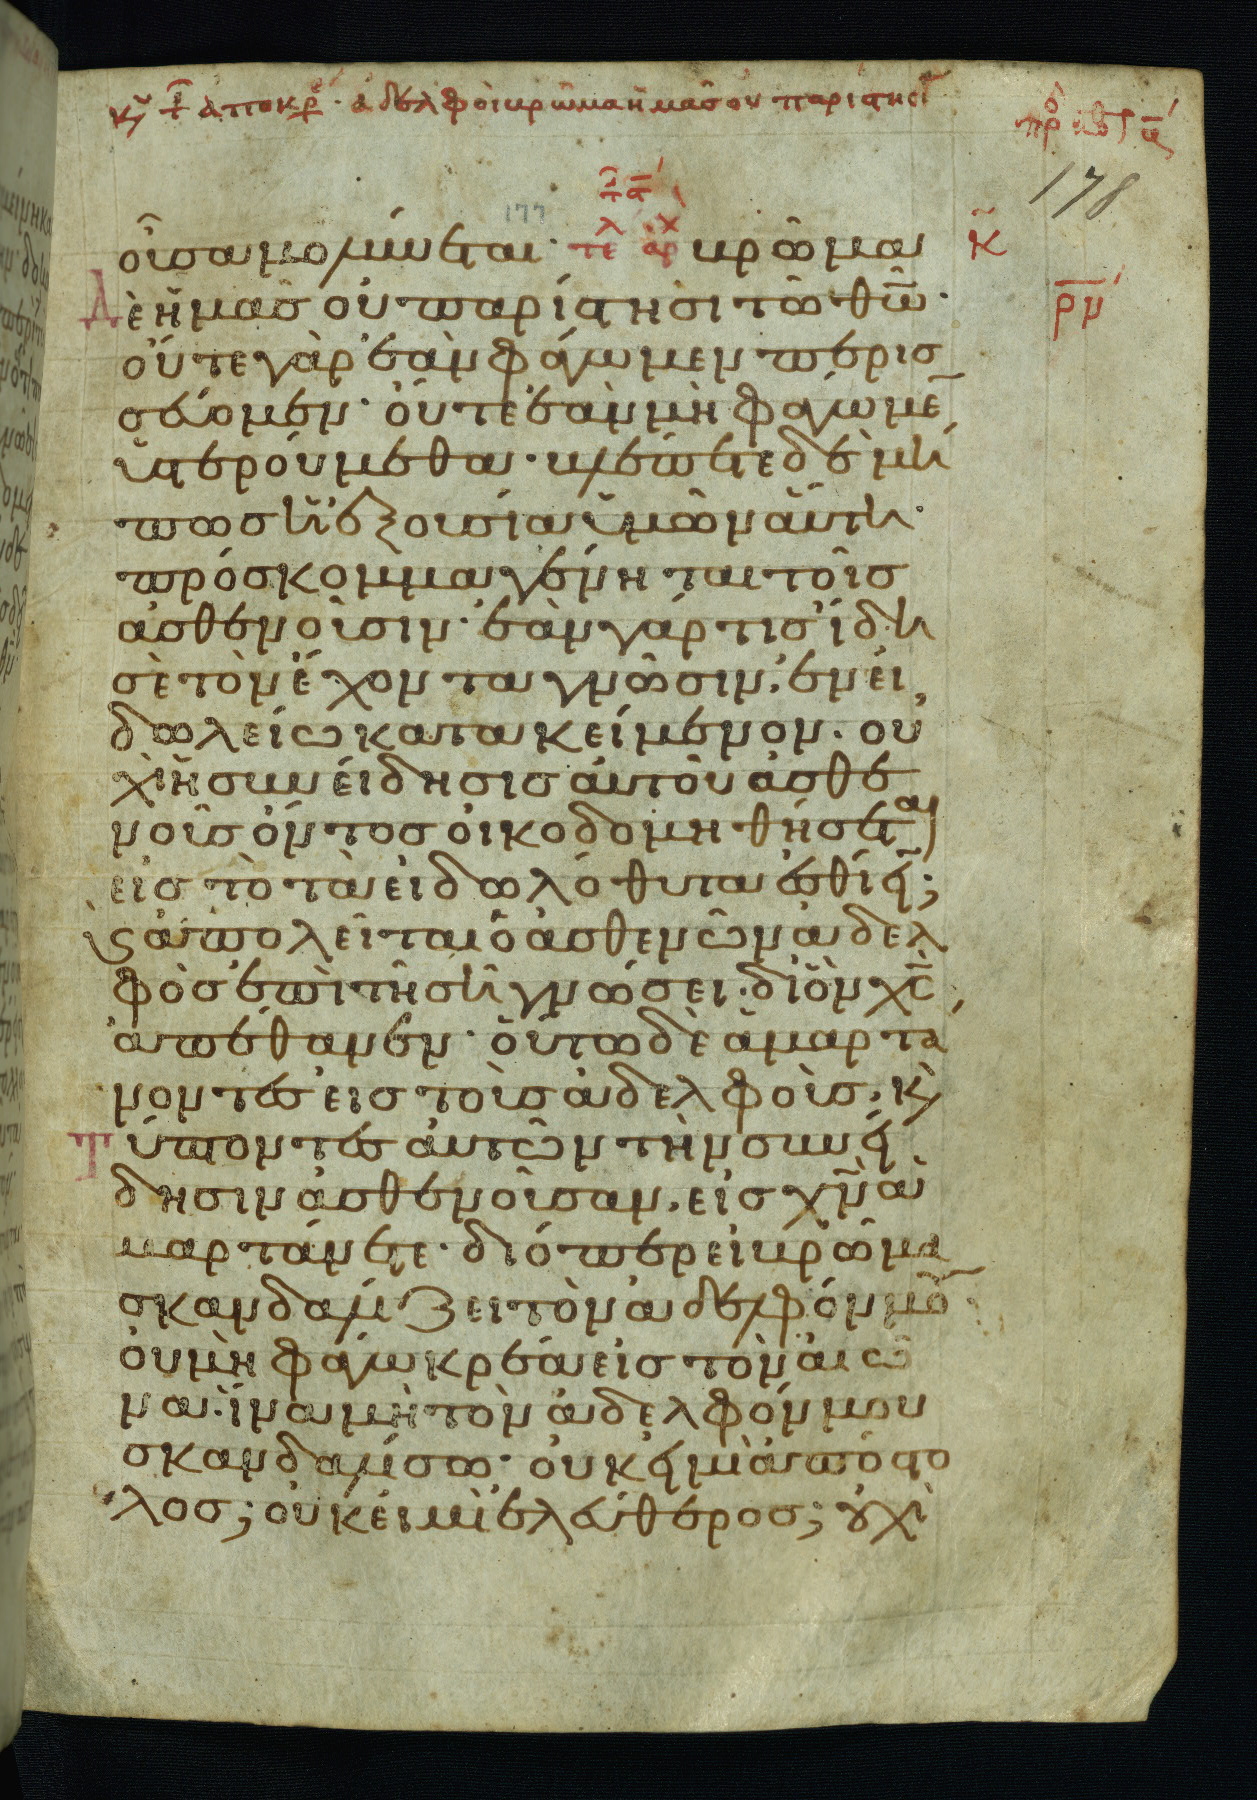 κυ τ αποκρ · ἀδελφοὶ βρῶμα ἡμᾶς οὐ παρίστησι
πρ α
178
τ α
177
οὖσα μολύνεται · τελ ἀρχ βρῶμα κ
δὲ ἡμᾶς οὐ παρίστησι τῶ θω · ρμ
οὔτε γὰρ ἐὰν φάγωμεν περισ
σεύομεν · οὔτε ἐὰν μὴ φάγωμε
ὑστερούμεθα · βλέπετε δὲ μή
πως ἡ ἐξουσία ὑμῶν αὕτη ·
πρόσκομμα γένηται τοῖς
ἀσθενοῦσιν · ἐὰν γάρ τις ἴδη
σὲ τὸν ἔχοντα γνῶσιν, ἐν εἰ
δωλείω κατακείμενον · οὐ
χὶ ἡ συνείδησις αὐτοῦ ἀσθε
νοῦς ὄντος οἰκοδομηθήσεται
εἰς τὸ τὰ εἰδωλόθυτα ἐσθίειν ;
ϗ ἀπολεῖται ὁ ἀσθενῶν ἀδελ
φὸς ἐπὶ τῆ σῆ γνώσει · δι ὃν χς
ἀπέθανεν · οὕτω δὲ ἁμαρτά
νοντες εἰς τοὺς ἀδελφοὺς, ϗ
τύπτοντες αὐτῶν τὴν συνεί
δησιν ἀσθενοῦσαν, εἰς χν ἁ
μαρτάνετε · διόπερ εἰ βρῶμα
σκανδαλίζει τὸν ἀδελφόν μου
οὐ μὴ φάγω κρέα εἰς τὸν αἰῶ
να · ἵνα μὴ τὸν ἀδελφόν μου
σκανδαλίσω · οὐκ εἰμὶ ἀπόστο
λος ; οὐκ εἰμὶ ἐλεύθερος ; οὐχὶ